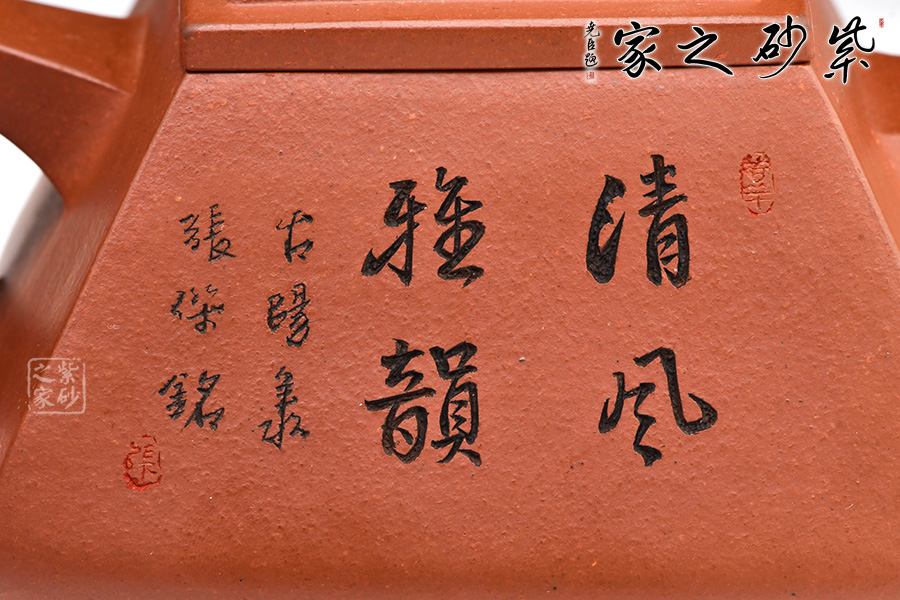 紫砂之家
尧臣題
清风
雅韻
古陽羨
張 銘
紫砂
之家